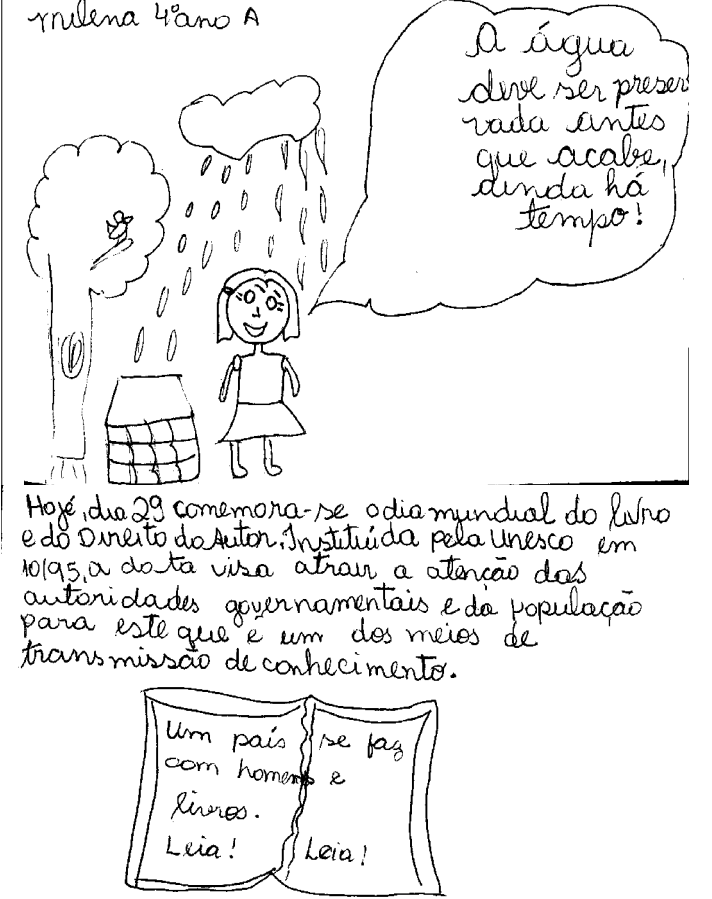 milena 4º ano A
A água
deve ser preser
vada antes
que acabe,
ainda há
tempo!
Hoje, dia 29 comemora-se o dia mundial do livro
e do Direito do Autor. Instituída pela Unesco em
10/95, a data visa atrair a atenção das
autoridades governamentais e da população
para este que é um dos meios de
transmissão de conhecimento.
Um país se faz
com homens e
livros.
Leia! Leia!